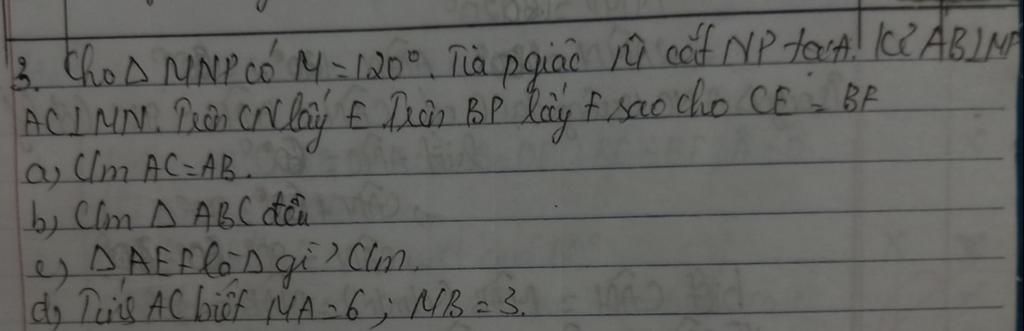 3. Cho Δ MNP có M̂ = 120°. Tia p giác M̂ cắt NP tại A. Kẻ AB⊥MP
AC⊥MN. Trên CN lấy E Trên BP lấy F sao cho CE = BF
a) C/m AC = AB.
b) C/m Δ ABC đều
c) Δ AEF là Δ gì? C/m.
d) Tính AC biết MA = 6; MB = 3.